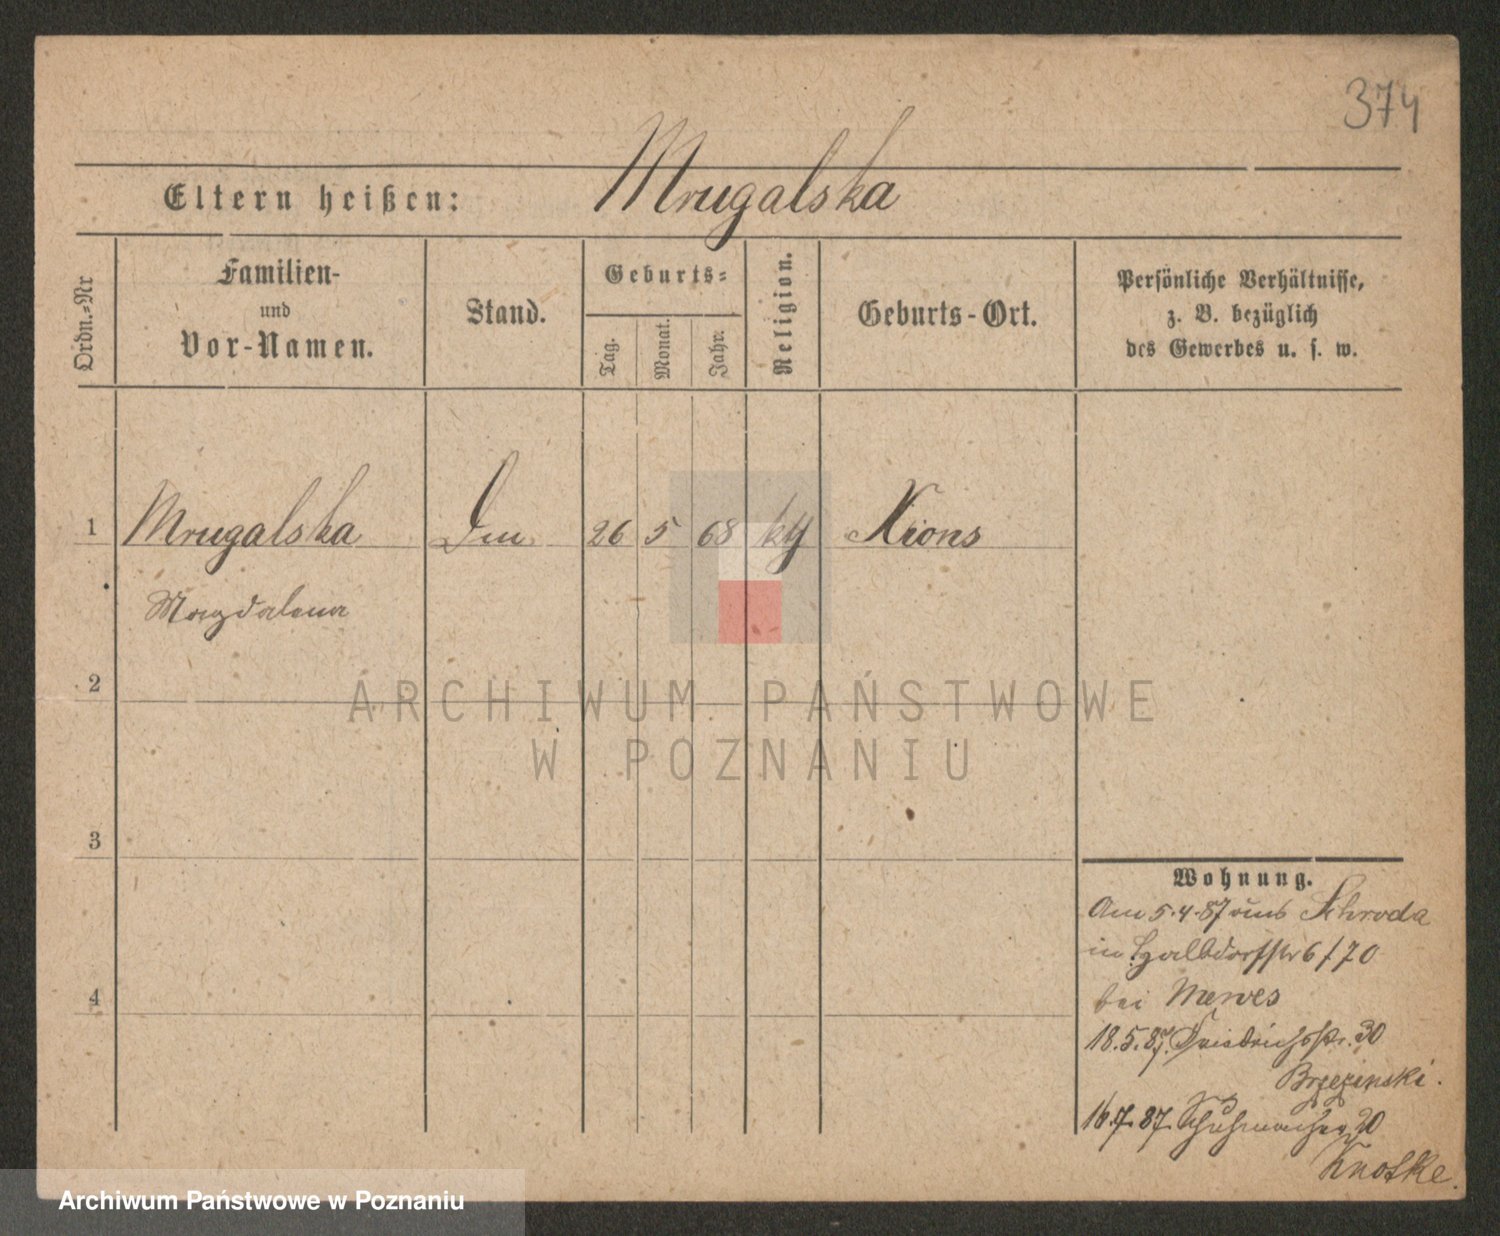 374
Eltern heißen: Mrugalska
Ordn.-Nr
Familien-
und
Vor-Namen.
Stand.
Geburts-
Tag.
Monat.
Jahr.
Religion.
Geburts-Ort.
Persönliche Verhältnisse,
z. B. bezüglich
des Gewerbes u. s. w.
1 Mrugalska 26 5 68 Xions
Magdalena
2
3
4
ARCHIWUM PAŃSTWOWE
W POZNANIU
Wohnung.
Am 5.4.87 aus Schroda
in Halbdorfstr 6/70
bei Mewes
18.5.87. Friedrichsstr. 30
Brzezinski.
16.7.87. Schuhmacher 20
Knoske.
Archiwum Państwowe w Poznaniu